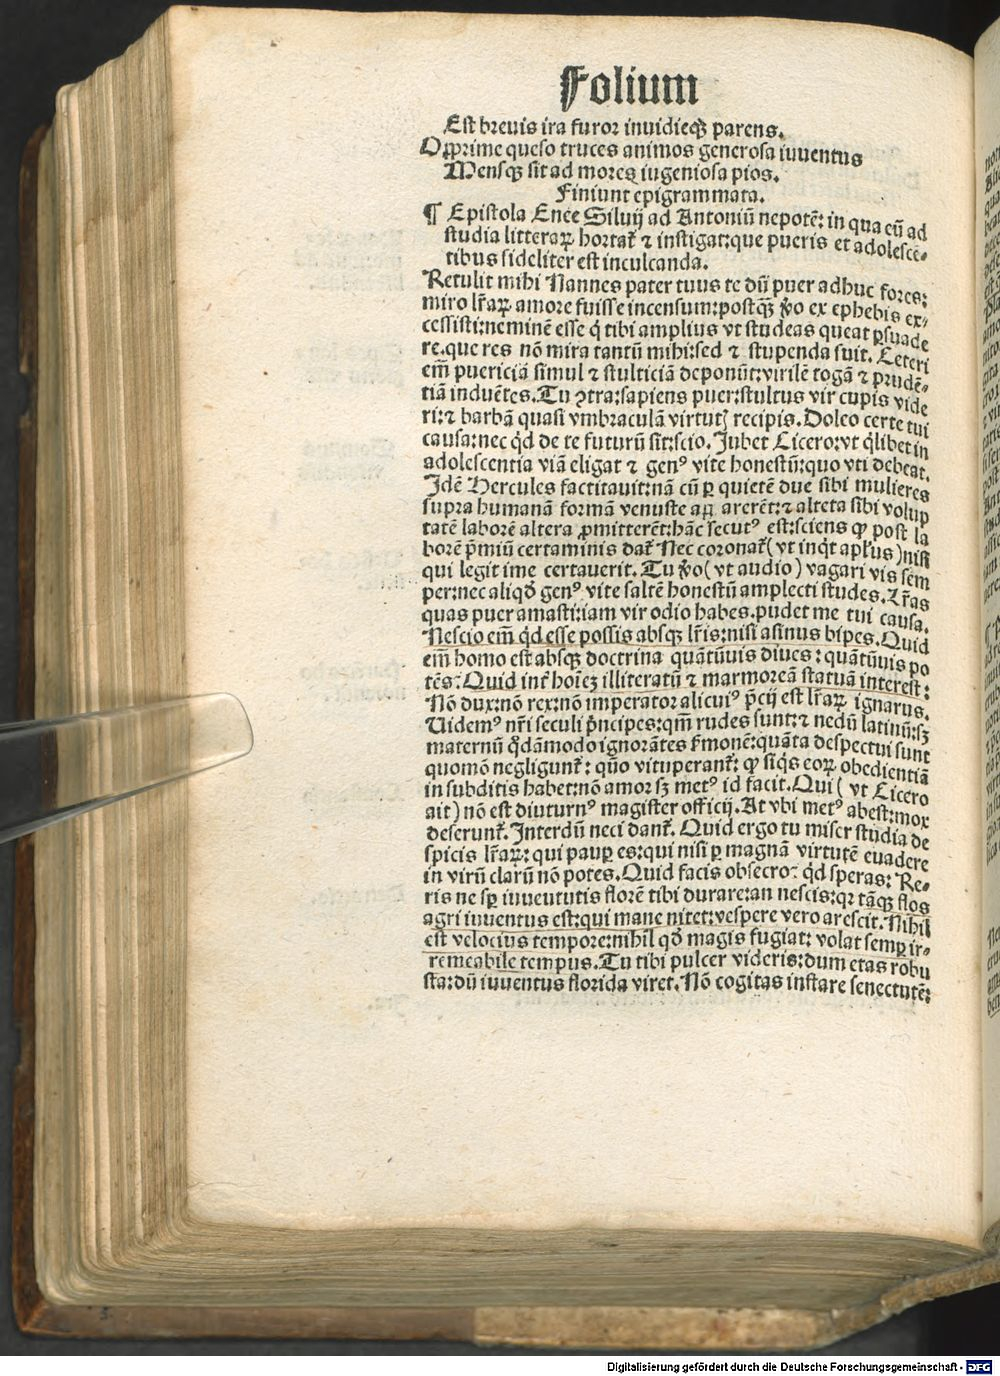 Folium
Est breuis ira furor inuidieqꝫ parens.
Opprime queso truces animos generosa iuuentus
Mensqꝫ sit ad mores iugeniosa pios.
Finiunt epigrammata.
¶ Epistola Enee Siluij ad Antoniū nepotē: in qua eū ad
studia litteraꝝ hortat᷑ ⁊ instigat:que pueris et adolescē⸗
tibus fideliter est inculcanda.
Retulit mihi Nannes pater tuus te dū puer adhuc fores:
miro lr̄aꝝ amore fuisse incensum:postqꝫ v̄o ex ephebis ex⸗
cessisti:neminē esse q̇ tibi amplius vt studeas queat ꝑsuade
re.que res nō mira tantū mihi:sed ⁊ stupenda fuit. Ceteri
em̄ puericiā simul ⁊ stulticiā deponūt:virilē togā ⁊ prudē⸗
tiā induētes.Tu ꝯtra:sapiens puer:stultus vir cupis vide
ri:⁊ barbā quasi vmbraculā virtutꝭ recipis.Doleo certe tui
causa:nec qd̄ de te futurū sit:scio. Jubet Cicero:vt q̇libet in
adolescentia viā eligat ⁊ genꝰ vite honestū:quo vti debeat.
Jdē Hercules factitauit:nā cū ꝑ quietē due sibi mulieres
supra humanā formā venuste apparerēt:⁊ alteta sibi volup
tatē laborē altera ꝓmitterēt:hāc secutꝰ est:sciens ꝙ post la
borē p̄miū certaminis dat᷑ Nec coronat᷑(vt inq̇t apl̄us)nisi
qui legitime certauerit. Tu v̄o(vt audio)vagari vis sem
per:nec aliqd̄ genꝰ vite saltē honestū amplecti studes. Lr̄as
quas puer amasti:iam vir odio habes.pudet me tui causa.
Nescio em̄ qd̄ esse possis absqꝫ lr̄is:nisi asinus bipes.Quid
em̄ homo est absqꝫ doctrina quātūuis diues:quātūuis po
tēs: Quid int̄ hoīeꝫ illiteratū ⁊ marmoreā statuā interest:
Nō dux:nō rex:nō imperator alicuiꝰ p̄cij est lr̄aꝝ ignarus.
Uidemꝰ nr̄i seculi p̄ncipes:qm̄ rudes sunt:⁊ nedū latinū:sꝫ
maternū qd̄āmodo ignorātes s̄monē:quāta despectui sunt
quomō negligunt᷑: quō vituperant᷑: ꝙ siq̇s eoꝝ obedientiā
in subditis habet:nō amor sꝫ metꝰ id facit. Qui( vt Cicero
ait)nō est diuturnꝰ magister officij. At vbi metꝰ abest:mox
deserunt᷑. Interdū neci dant᷑. Quid ergo tu miser studia de
spicis lr̄aꝝ: qui pauꝑ es:qui nisi ꝑ magnā virtutē euadere
in virū clarū nō potes.Quid facis obsecro: qd̄ speras: Re⸗
ris ne sꝑ iuuentutis florē tibi durare:an nescis:qꝛ tāqꝫ flos
agri iuuentus est:qui mane nitet:vespere vero arescit.Nihil
est velocius tempore:nihil qd̄ magis fugiat: volat semꝑ ir⸗
remeabile tempus.Tu tibi pulcer videris:dum etas robu
sta:dū iuuentus florida viret.Nō cogitas instare senectutē:
Digitalisierung gefördert durch die Deutsche Forschungsgemeinschaft - DFG